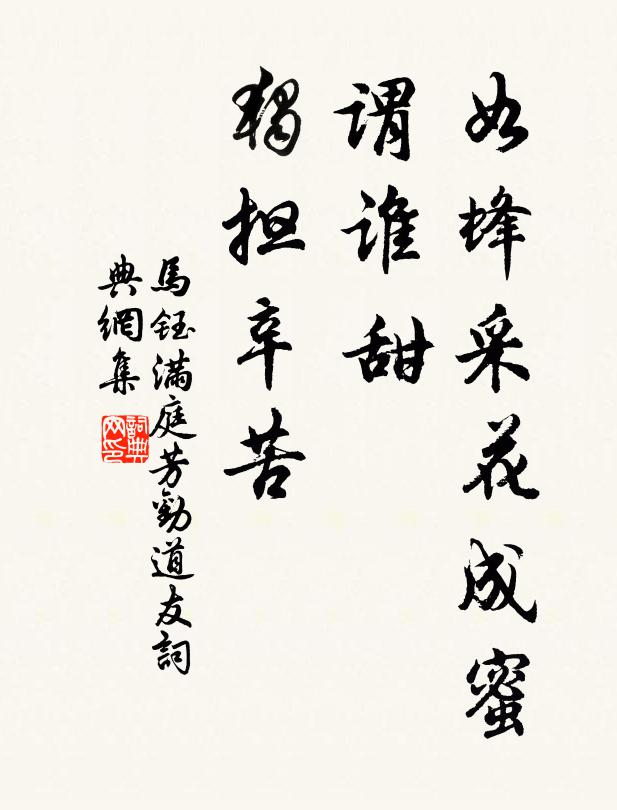 如蜂采花成蜜
谓谁甜
独担辛苦
馬鈺滿庭芳勸道友詞
典網集
詞典网印